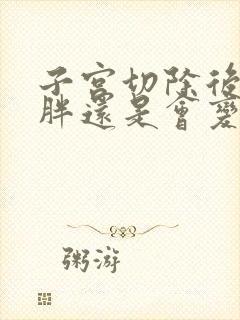 子宮切除後
胖還是會變
粥游